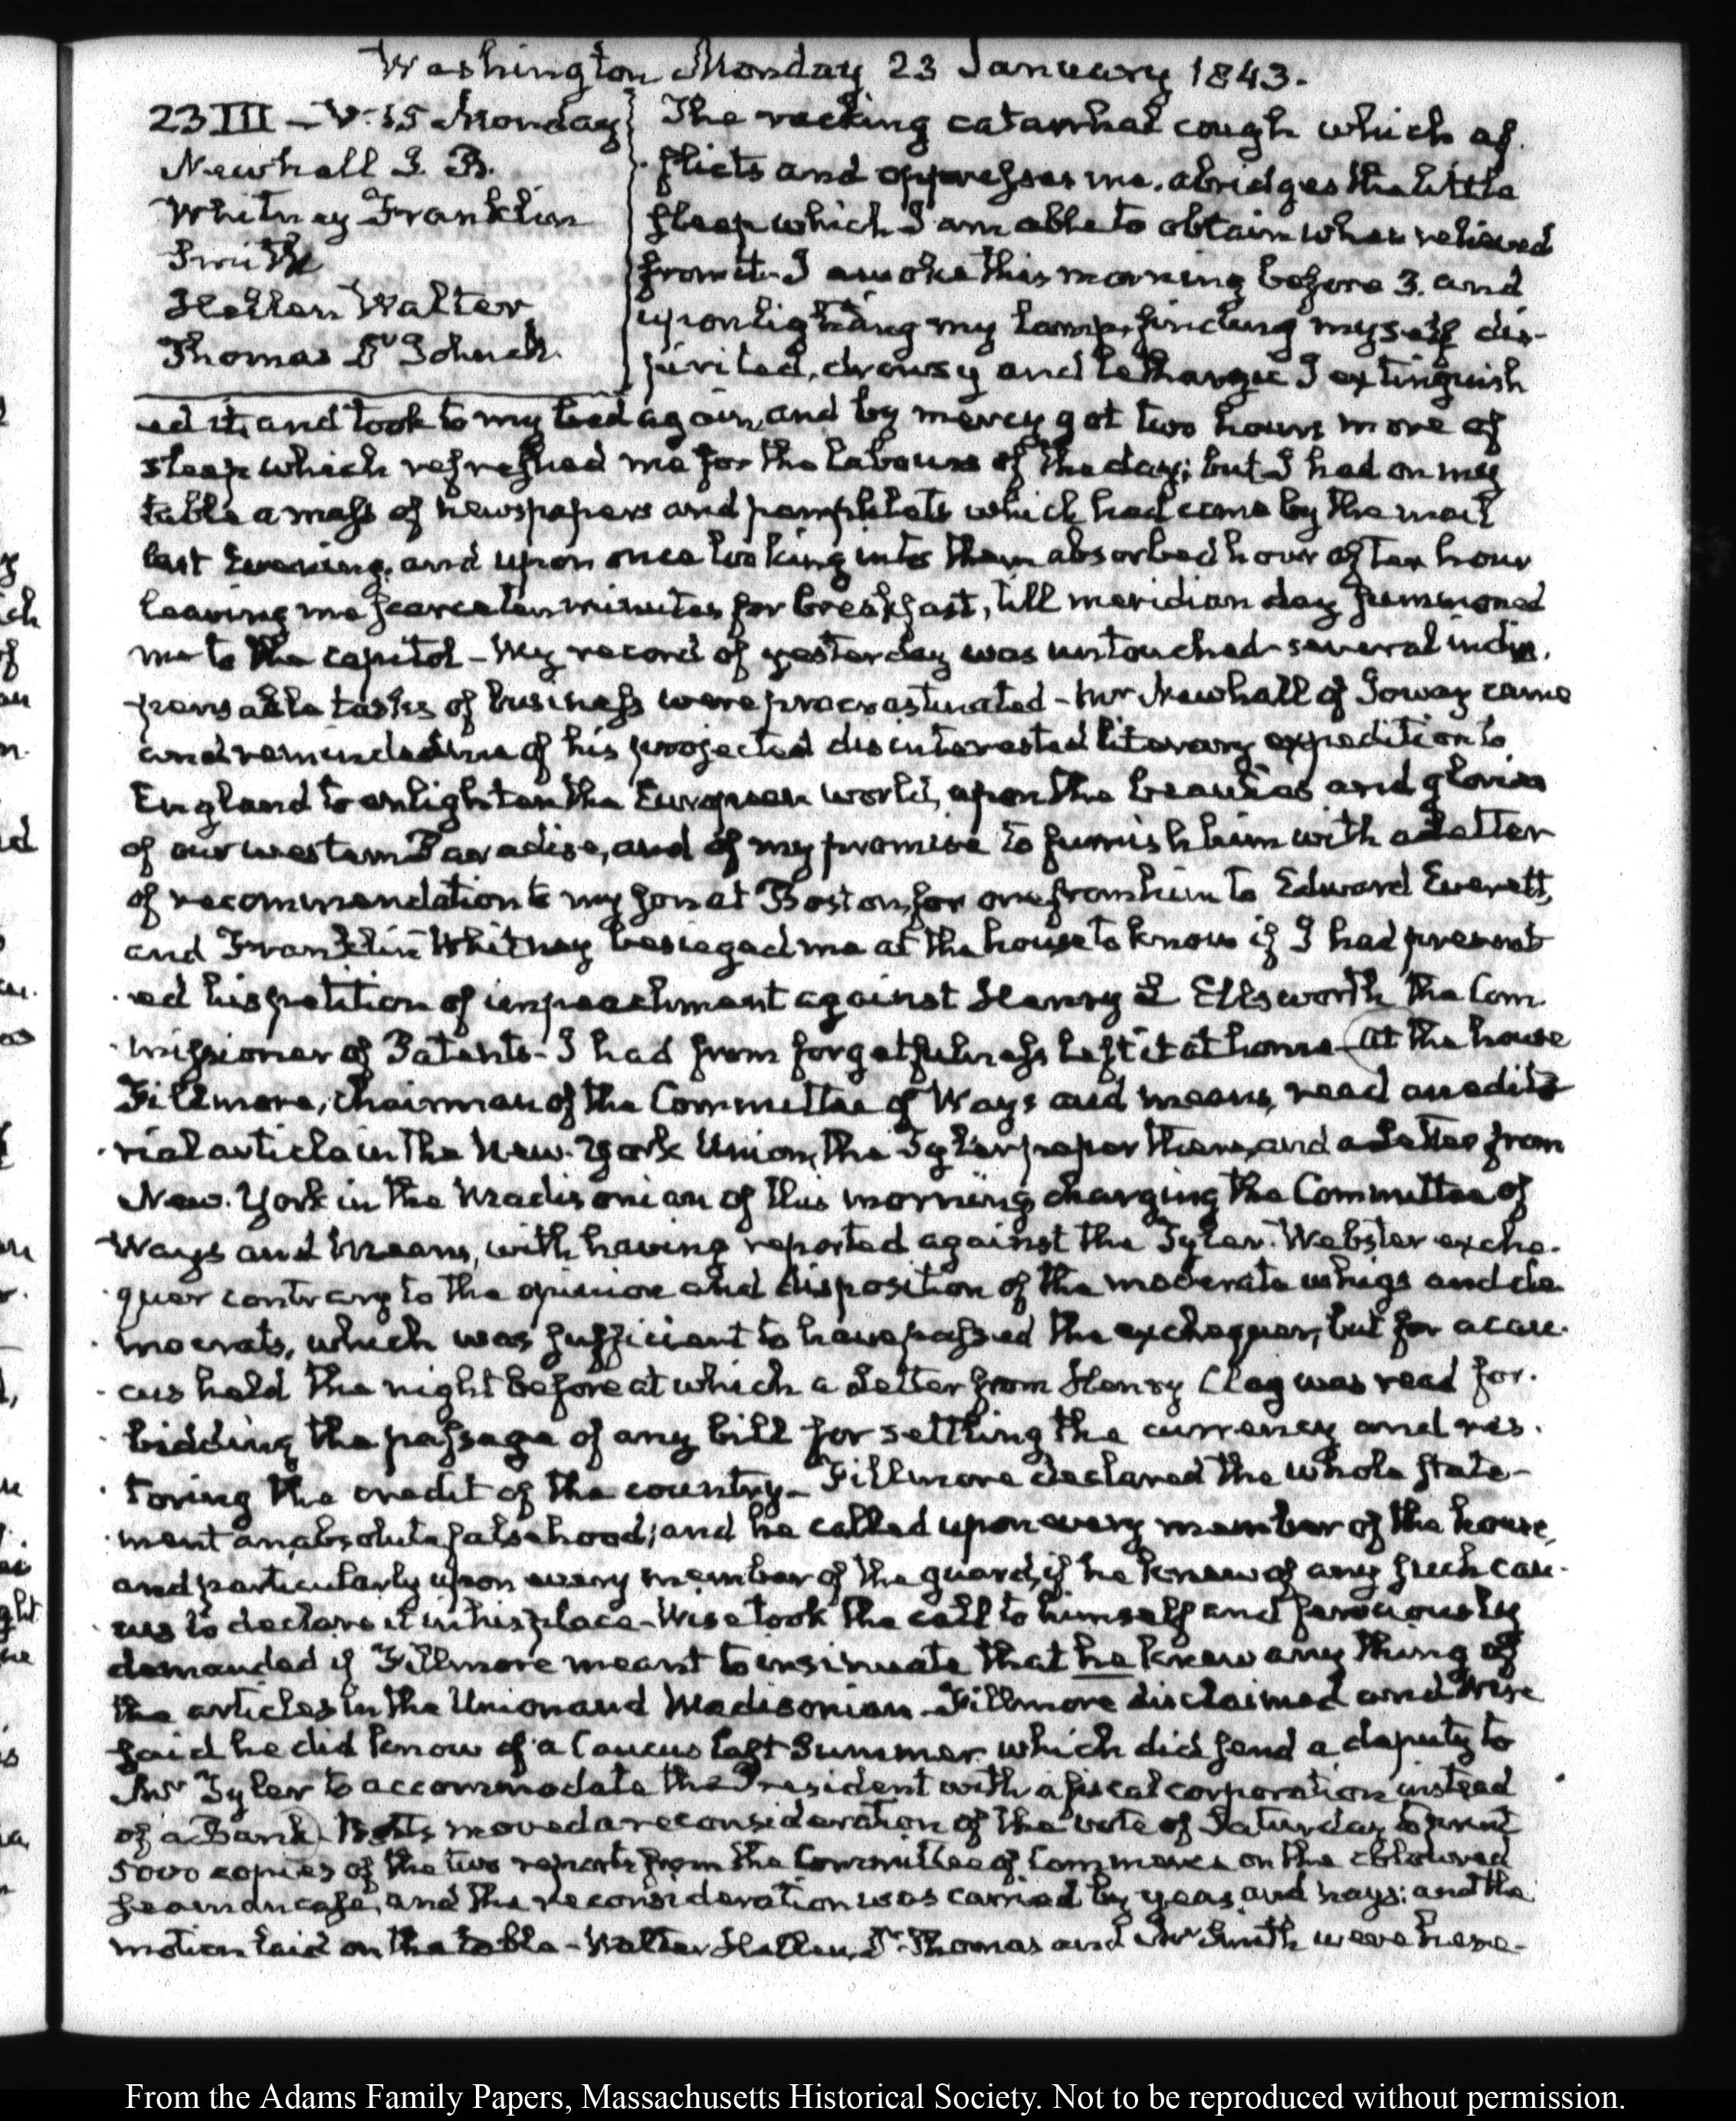 Washington Monday 23 January 1843.
23 III — V. 15 Monday
Newhall J. B.
Whitney Franklin
Smith
Hellen Walter
Thomas Dr John M.
The racking catarrhal cough which af-
flicts and oppresses me, abridges the little
sleep which I am able to obtain when relieved
from it. I awoke this morning before 3. and
upon lighting my lamp, finding myself dis-
pirited, drowsy and lethargic I extinguish
ed it, and took to my bed again, and by mercy got two hours more of
sleep which refreshed me for the labours of the day; but I had on my
table a mass of newspapers and pamphlets which had come by the mail
last Evening, and upon once looking into them absorbed hour after hour
leaving me scarce ten minutes for breakfast, till meridian day summoned
me to the Capitol – My record of yesterday was untouched – several indis-
pensable tasks of business were procrastinated – Mr Newhall of Ioway came
and reminded me of his projected disinterested literary expedition to
England to enlighten the European world, upon the beauties and glories
of our western Paradise, and of my promise to furnish him with a Letter
of recommendation to my son at Boston, for one from him to Edward Everett,
and Franklin Whitney besieged me at the house to know if I had present
ed his petition of impeachment against Henry L Ellsworth the Com
missioner of Patents – I had from forgetfulness left it at home – At the house
Fillmore, Chairman of the Committee of Ways and means, read an edito
rial article in the New-York Union, the Tyler paper there, and a Letter from
New-York in the Madisonian of this morning charging the Committee of
Ways and Means, with having reported against the Tyler-Webster exche-
quer contrary to the opinion and disposition of the moderate whigs and de
mocrats, which was sufficient to have passed the exchequer, but for a cau-
cus held the night before at which a Letter from Henry Clay was read for-
bidding the passage of any bill for settling the currency and res-
toring the credit of the country – Fillmore declared the whole state-
ment an absolute falsehood; and he called upon every member of the house,
and particularly upon every member of the guard, if he knew of any such cau-
cus to declare it in his place – Wise took the call to himself and ferociously
demanded if Fillmore meant to insinuate that he knew any thing of
the articles in the Union and Madisonian – Fillmore disclaimed and Wise
said he did know of a Caucus last Summer which did send a deputy to
Mr Tyler to accommodate the President with a fiscal corporation instead
of a Bank) Botts moved a reconsideration of the vote of Saturday to print
5000 copies of the two reports from the Committee of Commerce on the coloured
seaman case, and the reconsideration was carried by yeas and nays: and the
motion laid on the table – Walter Hellen, Dr Thomas and Mr Smith were here –
From the Adams Family Papers, Massachusetts Historical Society. Not to be reproduced without permission.